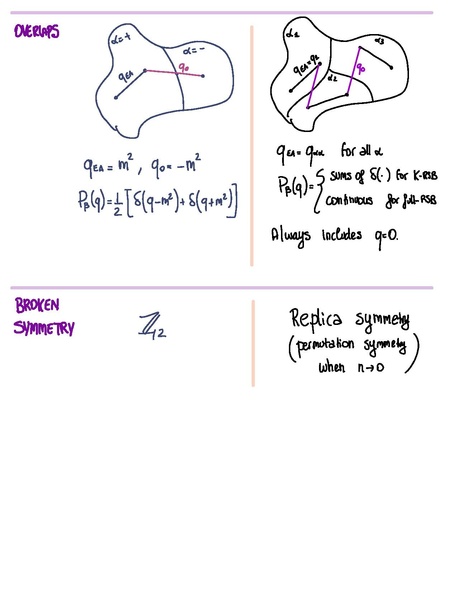 OVERLAPS
α=+
α=-
qEA
q0
qEA = m², q0 = -m²
Pβ(q) = 1/2 [δ(q-m²) + δ(q+m²)]
α1
α3
qEA=q2
α2
q0
qEA = qαα for all α
Pβ(q) = { sums of δ(·) for K-RSB
continuous for full-RSB
Always includes q=0.
BROKEN
SYMMETRY
ℤ2
Replica symmetry
(permutation symmetry
when n→0)